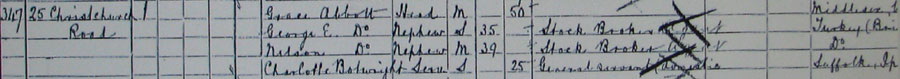 347 25 Christchurch 1 Grace Abbott Head M 50 Middlesex
Road George E. Do Nephew S 35 Stock Broker Turkey (Bri
Nelson Do Nephew M 39 Stock Broker Do
Charlotte Botwright Serv S 25 General servant domestic Suffolk, Ip